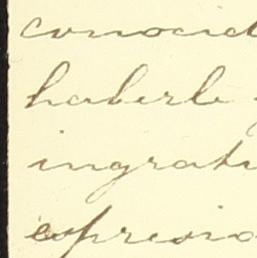 conocid
haberle
ingrati
espresio